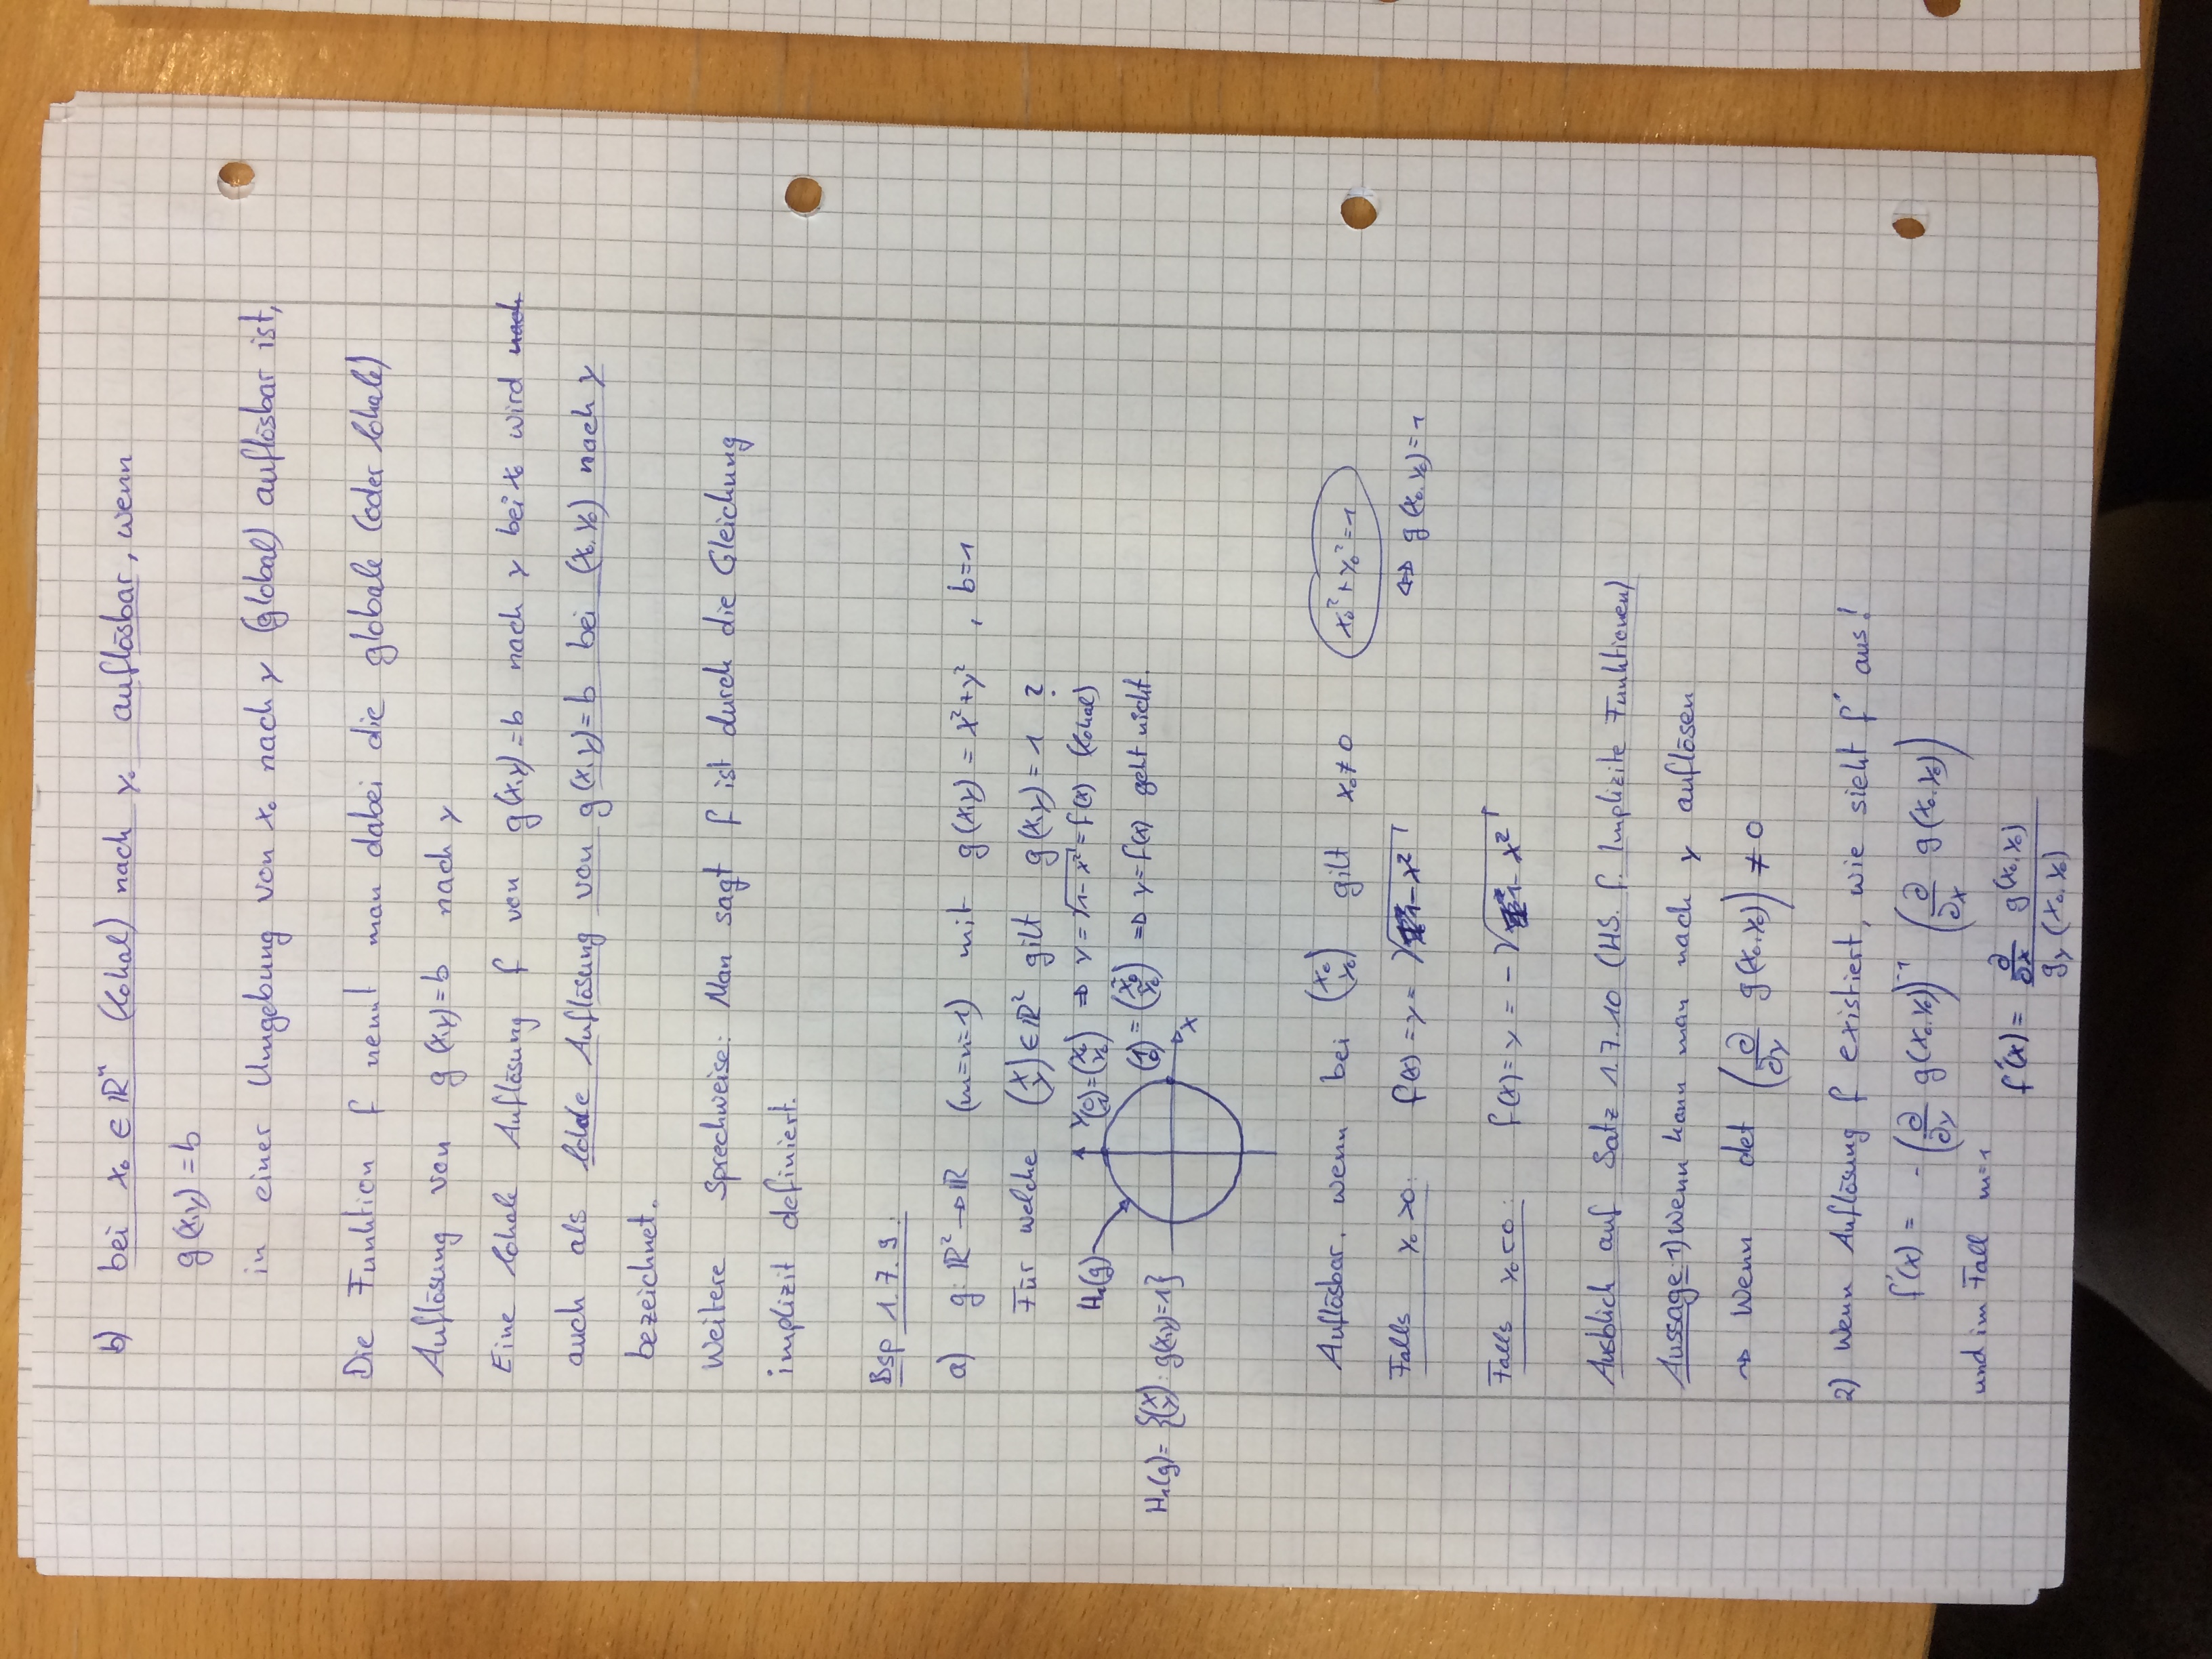 b) bei x₀ ∈ ℝⁿ (lokal) nach y₀ auflösbar, wenn
g(x,y) = b
in einer Umgebung von x₀ nach y (global) auflösbar ist,
Die Funktion f nennt man dabei die globale (oder lokale)
Auflösung von g(x,y)=b nach y
Eine lokale Auflösung f von g(x,y)=b nach y bei x₀ wird nach
auch als lokale Auflösung von g(x,y)=b bei (x₀,y₀) nach y
bezeichnet.
Weitere Sprechweise: Man sagt f ist durch die Gleichung
implizit definiert.
Bsp 1.7.9:
a) g: ℝ² → ℝ (m=n=1) mit g(x,y) = x²+y² , b=1
Für welche (x y) ∈ ℝ² gilt g(x,y) = 1 ?
H₁(g) y (0 1) = (x₀ y₀) ⇒ y = √(1-x²) = f(x) (lokal)
(1 0) = (x̃₀ ỹ₀) ⇒ y=f(x) geht nicht.
H₁(g) = {(x y) : g(x,y)=1}
x
Auflösbar, wenn bei (x₀ y₀) gilt x₀ ≠ 0 x₀²+y₀²=1
Falls y₀ >0: f(x) = y = √(1-x²) ⇔ g(x₀,y₀)=1
Falls y₀<0: f(x) = y = -√(1-x²)
Ausblick auf Satz 1.7.10 (HS. f. Implizite Funktionen)
Aussage: 1) Wenn kann man nach y auflösen
⇝ Wenn det (∂/∂y g(x₀,y₀)) ≠ 0
2) Wenn Auflösung f existiert, wie sieht f' aus!
f'(x) = -(∂/∂y g(x₀,y₀))⁻¹ (∂/∂x g(x₀,y₀))
und im Fall m=1
f'(x) = ∂/∂x g(x₀,y₀) / g_y (x₀,y₀)